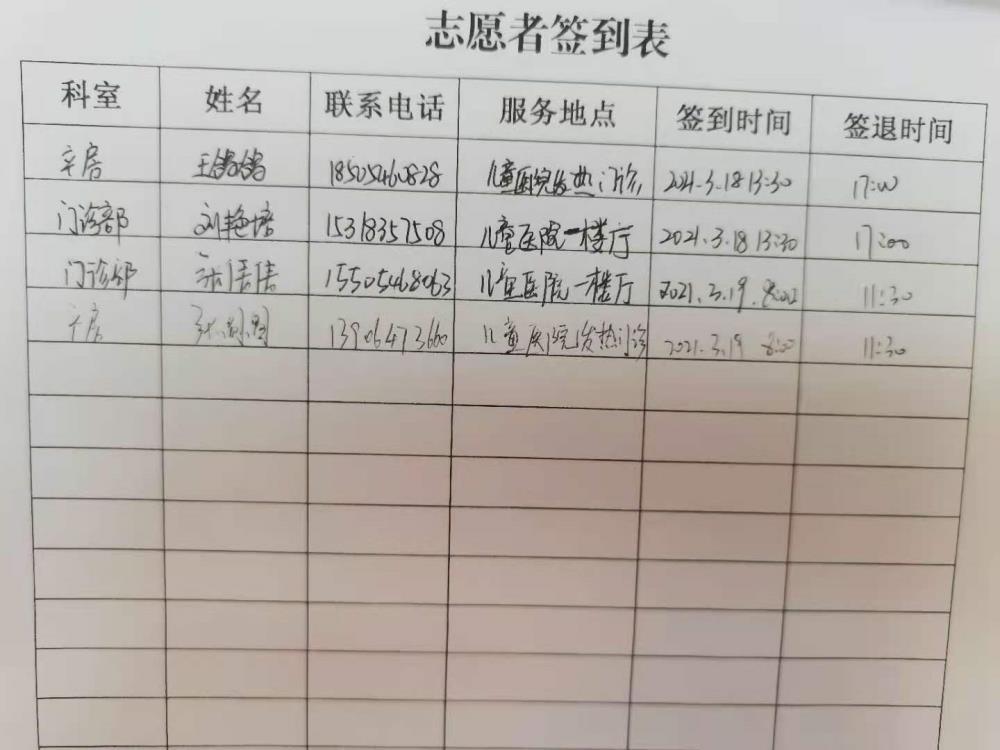 志愿者签到表
科室 姓名 联系电话 服务地点 签到时间 签退时间
18505460828 儿童医院发热门诊 2021.3.18 13:30 17:00
门诊部 刘艳培 15318357508 儿童医院一楼厅 2021.3.18 13:30 17:00
门诊部 15505468063 儿童医院一楼厅 2021.3.19. 8:00 11:30
13906473660 儿童医院发热门诊 2021.3.19 8:00 11:30